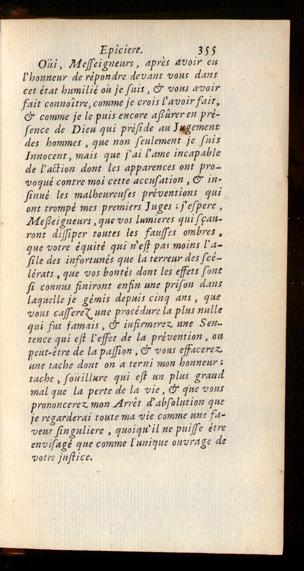 Epiciere. 355
Oüi, Meſſeigneurs, après avoir eu
l'honneur de répondre devant vous dans
cet état humilié où je ſuis, & vous avoir
fait connoître, comme je crois l'avoir fait,
& comme je le puis encore aßûrer en pré-
ſence de Dieu qui préſide au Jugement
des hommes, que non ſeulement je ſuis
Innocent, mais que j'ai l'ame incapable
de l'action dont les apparences ont pro-
voqué contre moi cette accuſation, & in-
ſinué les malheureuſes préventions qui
ont trompé mes premiers Juges ; j'eſpere,
Meßeigneurs, que vos lumieres qui ſçau-
ront diſſiper toutes les fauſſes ombres,
que votre équité qui n'eſt pas moins l'a-
ſile des infortunés que la terreur des ſcé-
lérats, que vos bontés dont les effets ſont
ſi connus finiront enfin une priſon dans
laquelle je gémis depuis cinq ans, que
vous caſſerez une procédure la plus nulle
qui fut jamais, & infirmerez une Sen-
tence qui eſt l'effet de la prévention, ou
peut-être de la paſſion, & vous effacerez
une tache dont on a terni mon honneur ;
tache, ſoüillure qui eſt un plus grand
mal que la perte de la vie, & que vous
prononcerez mon Arrêt d'abſolution que
je regarderai toute ma vie comme une fa-
veur ſinguliere, quoiqu'il ne puiſſe être
enviſagé que comme l'unique ouvrage de
votre juſtice.